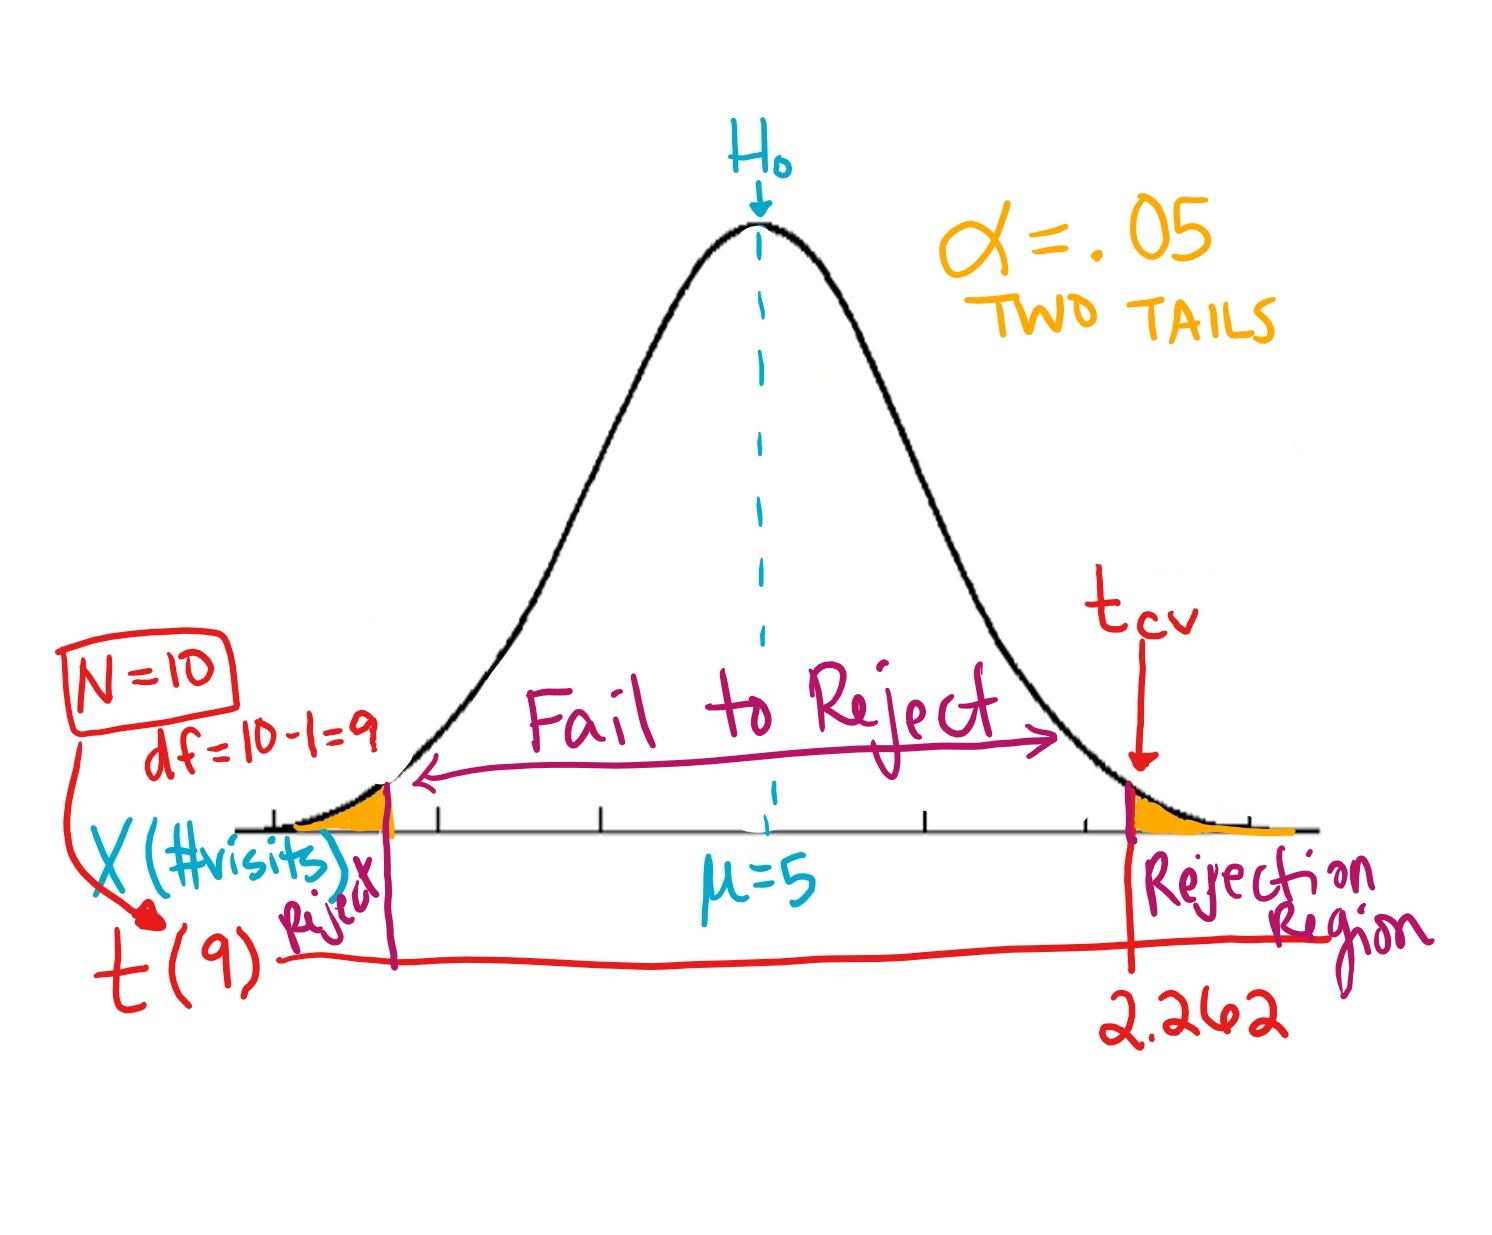 H₀
α = .05
TWO TAILS
t cv
N = 10
df = 10 - 1 = 9
Fail to Reject
X (#visits)
Reject
μ = 5
Rejection
Region
t (9)
2.262